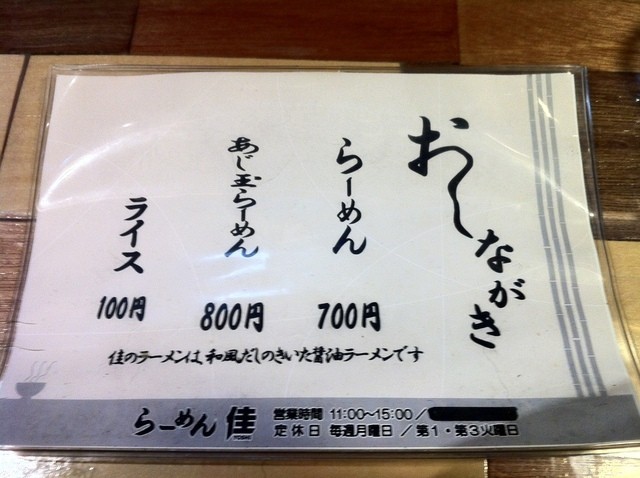 おしながき
らーめん
700円
あじ玉らーめん
800円
ライス
100円
佳のラーメンは、和風だしのきいた醤油ラーメンです
らーめん 佳
YOSHI
営業時間 11:00~15:00/
定休日 毎週月曜日/第1・第3火曜日